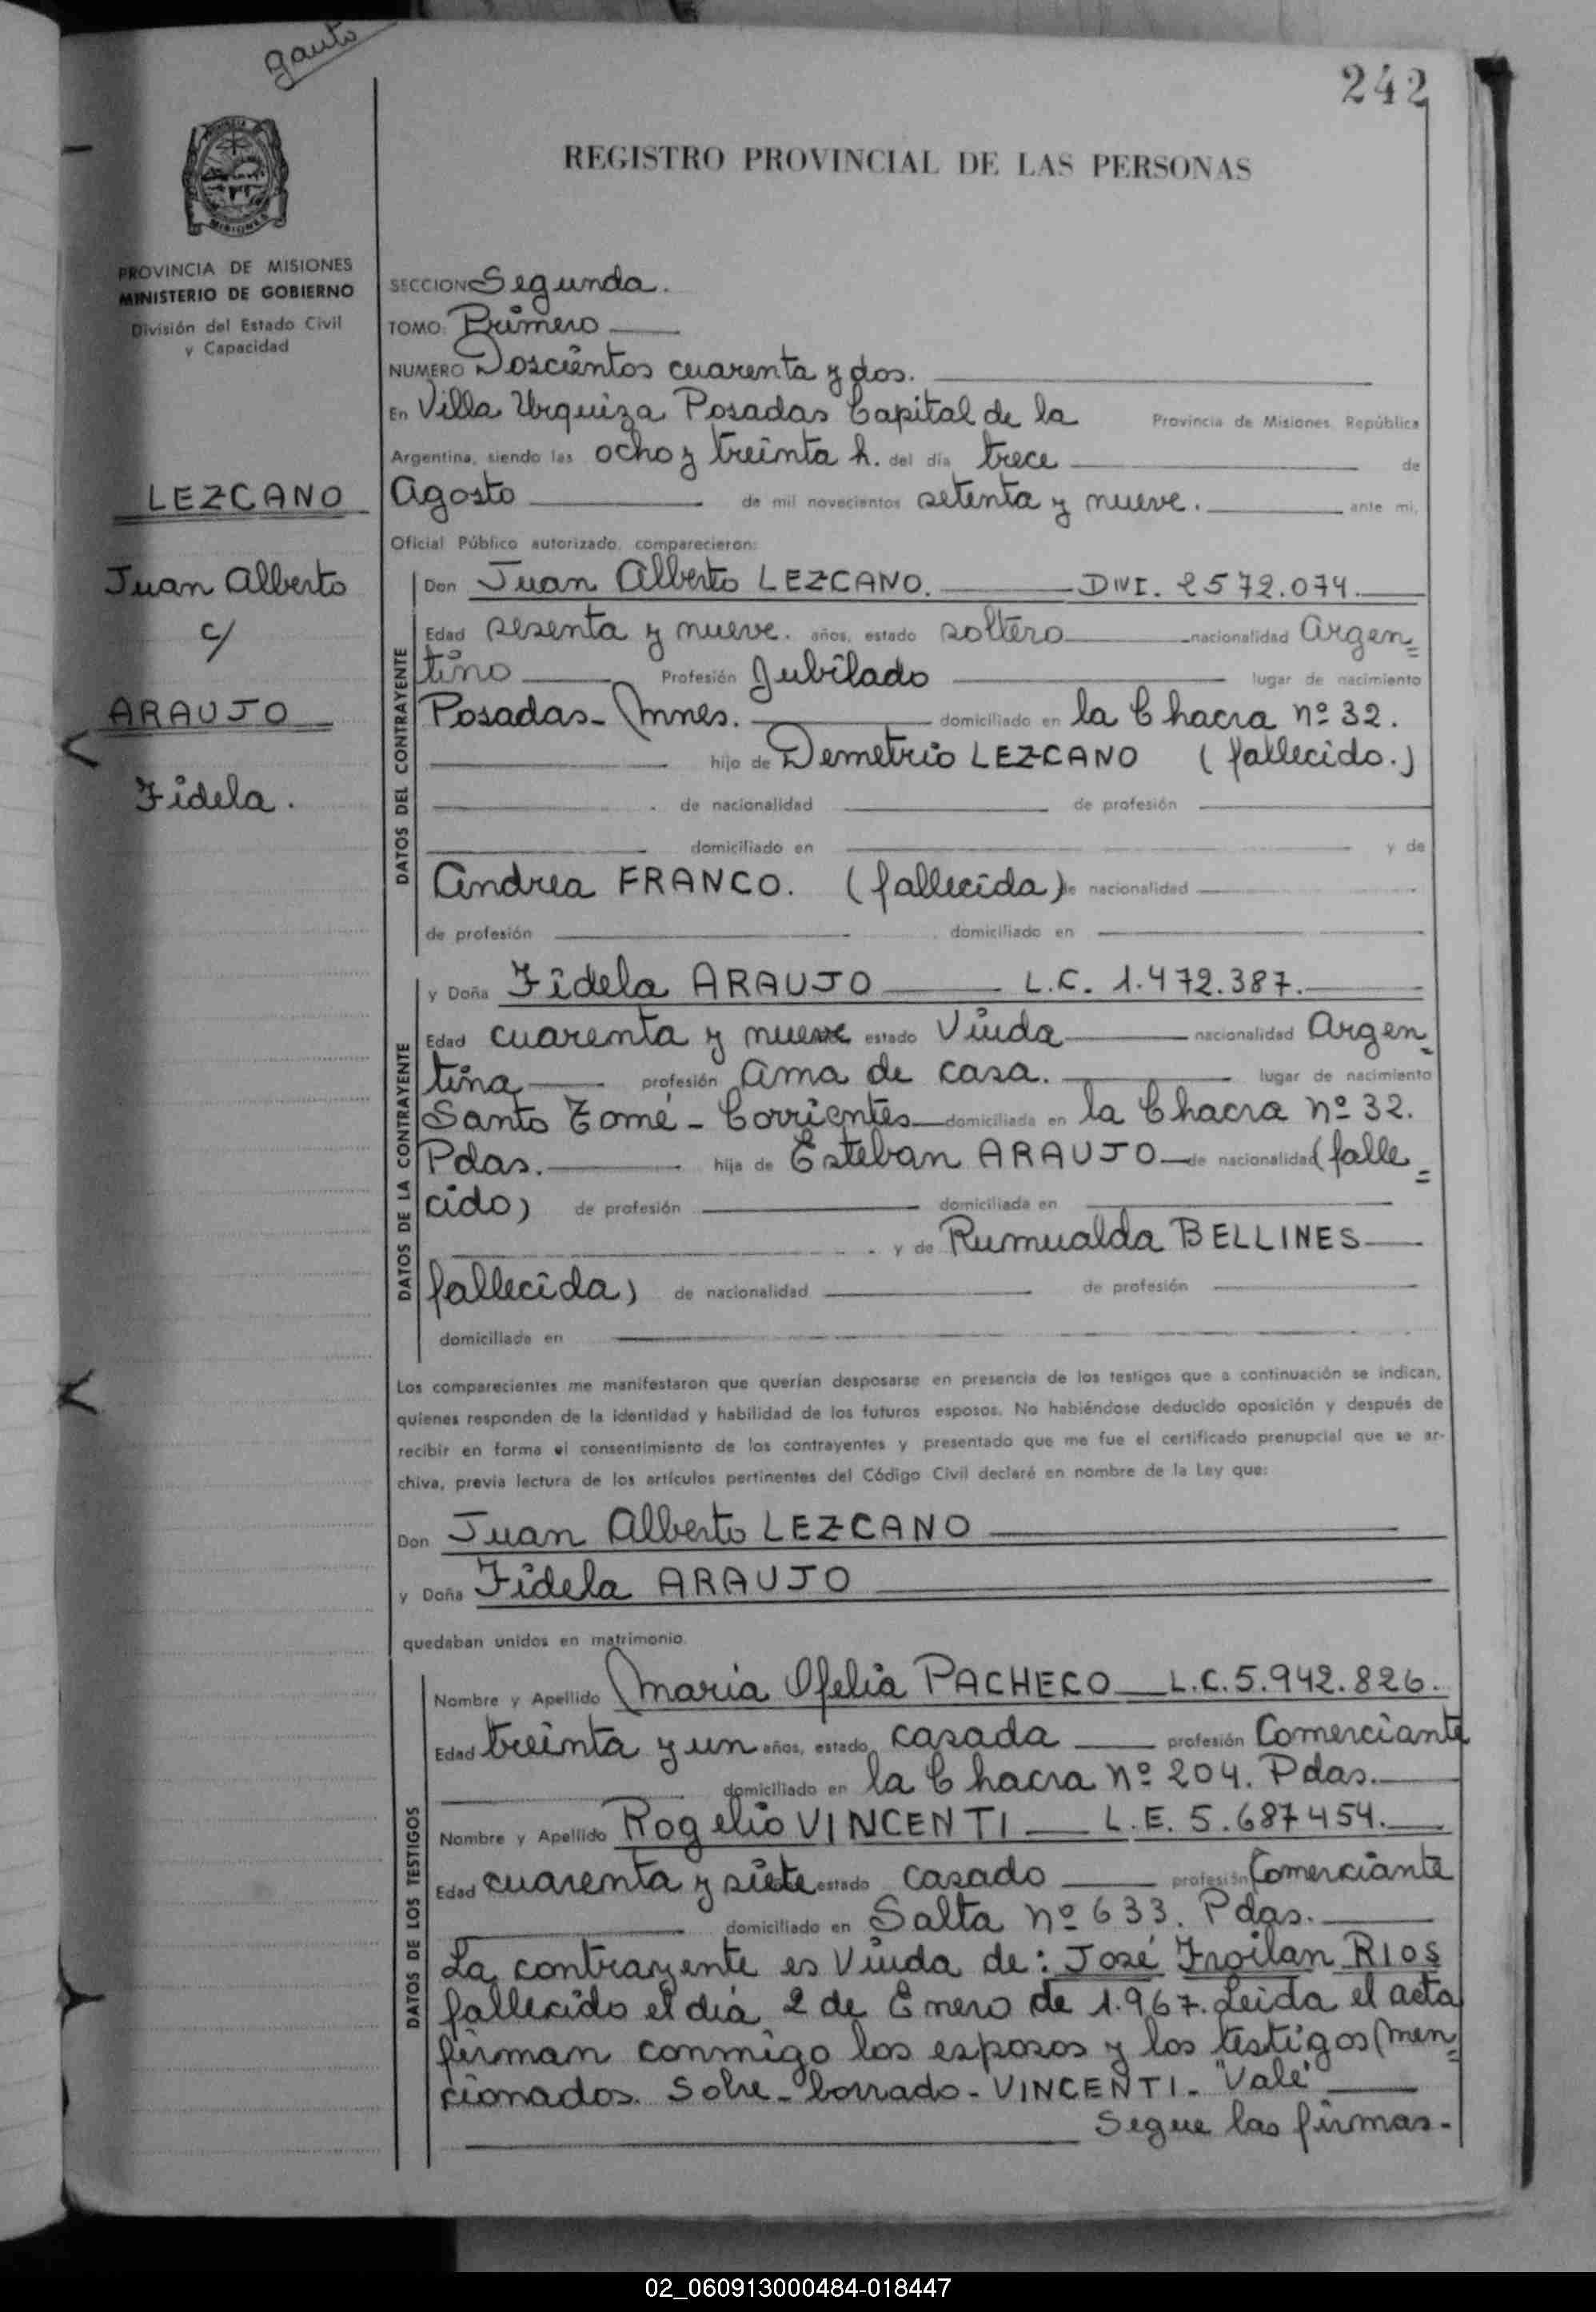 gauto
242
REGISTRO PROVINCIAL DE LAS PERSONAS
PROVINCIA DE MISIONES
MINISTERIO DE GOBIERNO
División del Estado Civil
y Capacidad
LEZCANO
Juan Alberto
c/
ARAUJO
Fidela.
SECCION Segunda.
TOMO: Primero
NUMERO Doscientos cuarenta y dos.
En Villa Urquiza Posadas Capital de la Provincia de Misiones República
Argentina, siendo las ocho y treinta h. del día trece de
Agosto de mil novecientos setenta y nueve. ante mi,
Oficial Público autorizado, comparecieron:
DATOS DEL CONTRAYENTE
Don Juan Alberto LEZCANO. DNI. 2572.074.
Edad sesenta y nueve. años, estado soltero nacionalidad Argen=
tino Profesión Jubilado lugar de nacimiento
Posadas-Mnes. domiciliado en la Chacra nº 32.
hijo de Demetrio LEZCANO (fallecido.)
de nacionalidad de profesión
domiciliado en y de
Andrea FRANCO. (fallecida) de nacionalidad
de profesión domiciliado en
DATOS DE LA CONTRAYENTE
y Doña Fidela ARAUJO L.C. 1.472.387.
Edad cuarenta y nueve estado Viuda nacionalidad Argen=
tina profesión Ama de casa. lugar de nacimiento
Santo Tomé - Corrientes domiciliada en la Chacra nº 32.
Pdas. hija de Esteban ARAUJO de nacionalidad (falle=
cido) de profesión domiciliada en
y de Rumualda BELLINES
fallecida) de nacionalidad de profesión
domiciliada en
Los comparecientes me manifestaron que querían desposarse en presencia de los testigos que a continuación se indican,
quienes responden de la identidad y habilidad de los futuros esposos. No habiéndose deducido oposición y después de
recibir en forma el consentimiento de los contrayentes y presentado que me fue el certificado prenupcial que se ar-
chiva, previa lectura de los artículos pertinentes del Código Civil declaré en nombre de la Ley que:
Don Juan Alberto LEZCANO
y Doña Fidela ARAUJO
quedaban unidos en matrimonio.
DATOS DE LOS TESTIGOS
Nombre y Apellido Maria Ofelia PACHECO L.C. 5.942.826.
Edad treinta y un años, estado casada profesión Comerciante
domiciliado en la Chacra nº 204. Pdas.
Nombre y Apellido Rogelio VINCENTI L.E. 5.687454.
Edad cuarenta y siete estado casado profesión Comerciante
domiciliado en Salta nº 633. Pdas.
La contrayente es Viuda de: José Froilan RIOS
fallecido el día 2 de Enero de 1.967. Leida el acta
firman conmigo los esposos y los testigos men=
cionados. Sobre-borrado-VINCENTI-"Vale"
Segue las firmas-
02_060913000484-018447